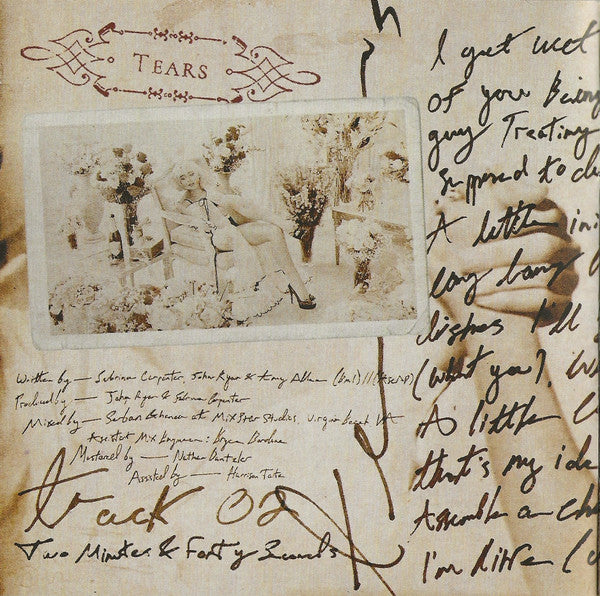 Tears
Written by — Sabrina Carpenter, John Ryan & Amy Allen (BMI)//(ASCAP)
Produced by — John Ryan & Sabrina Carpenter
Mixed by — Serban Ghenea at MixStar Studios, Virginia Beach VA
Assistant Mix Engineer: Bryce Bordone
Mastered by — Nathan Dantzler
Assisted by — Harrison Tate
track 02
Two Minutes & Forty Seconds
I get wet
of you Being
guy Treating
supposed to do
A little ini
long way
dishes I'll g
(what you).
A little
that's my idea
Assemble a cha
I'm like (